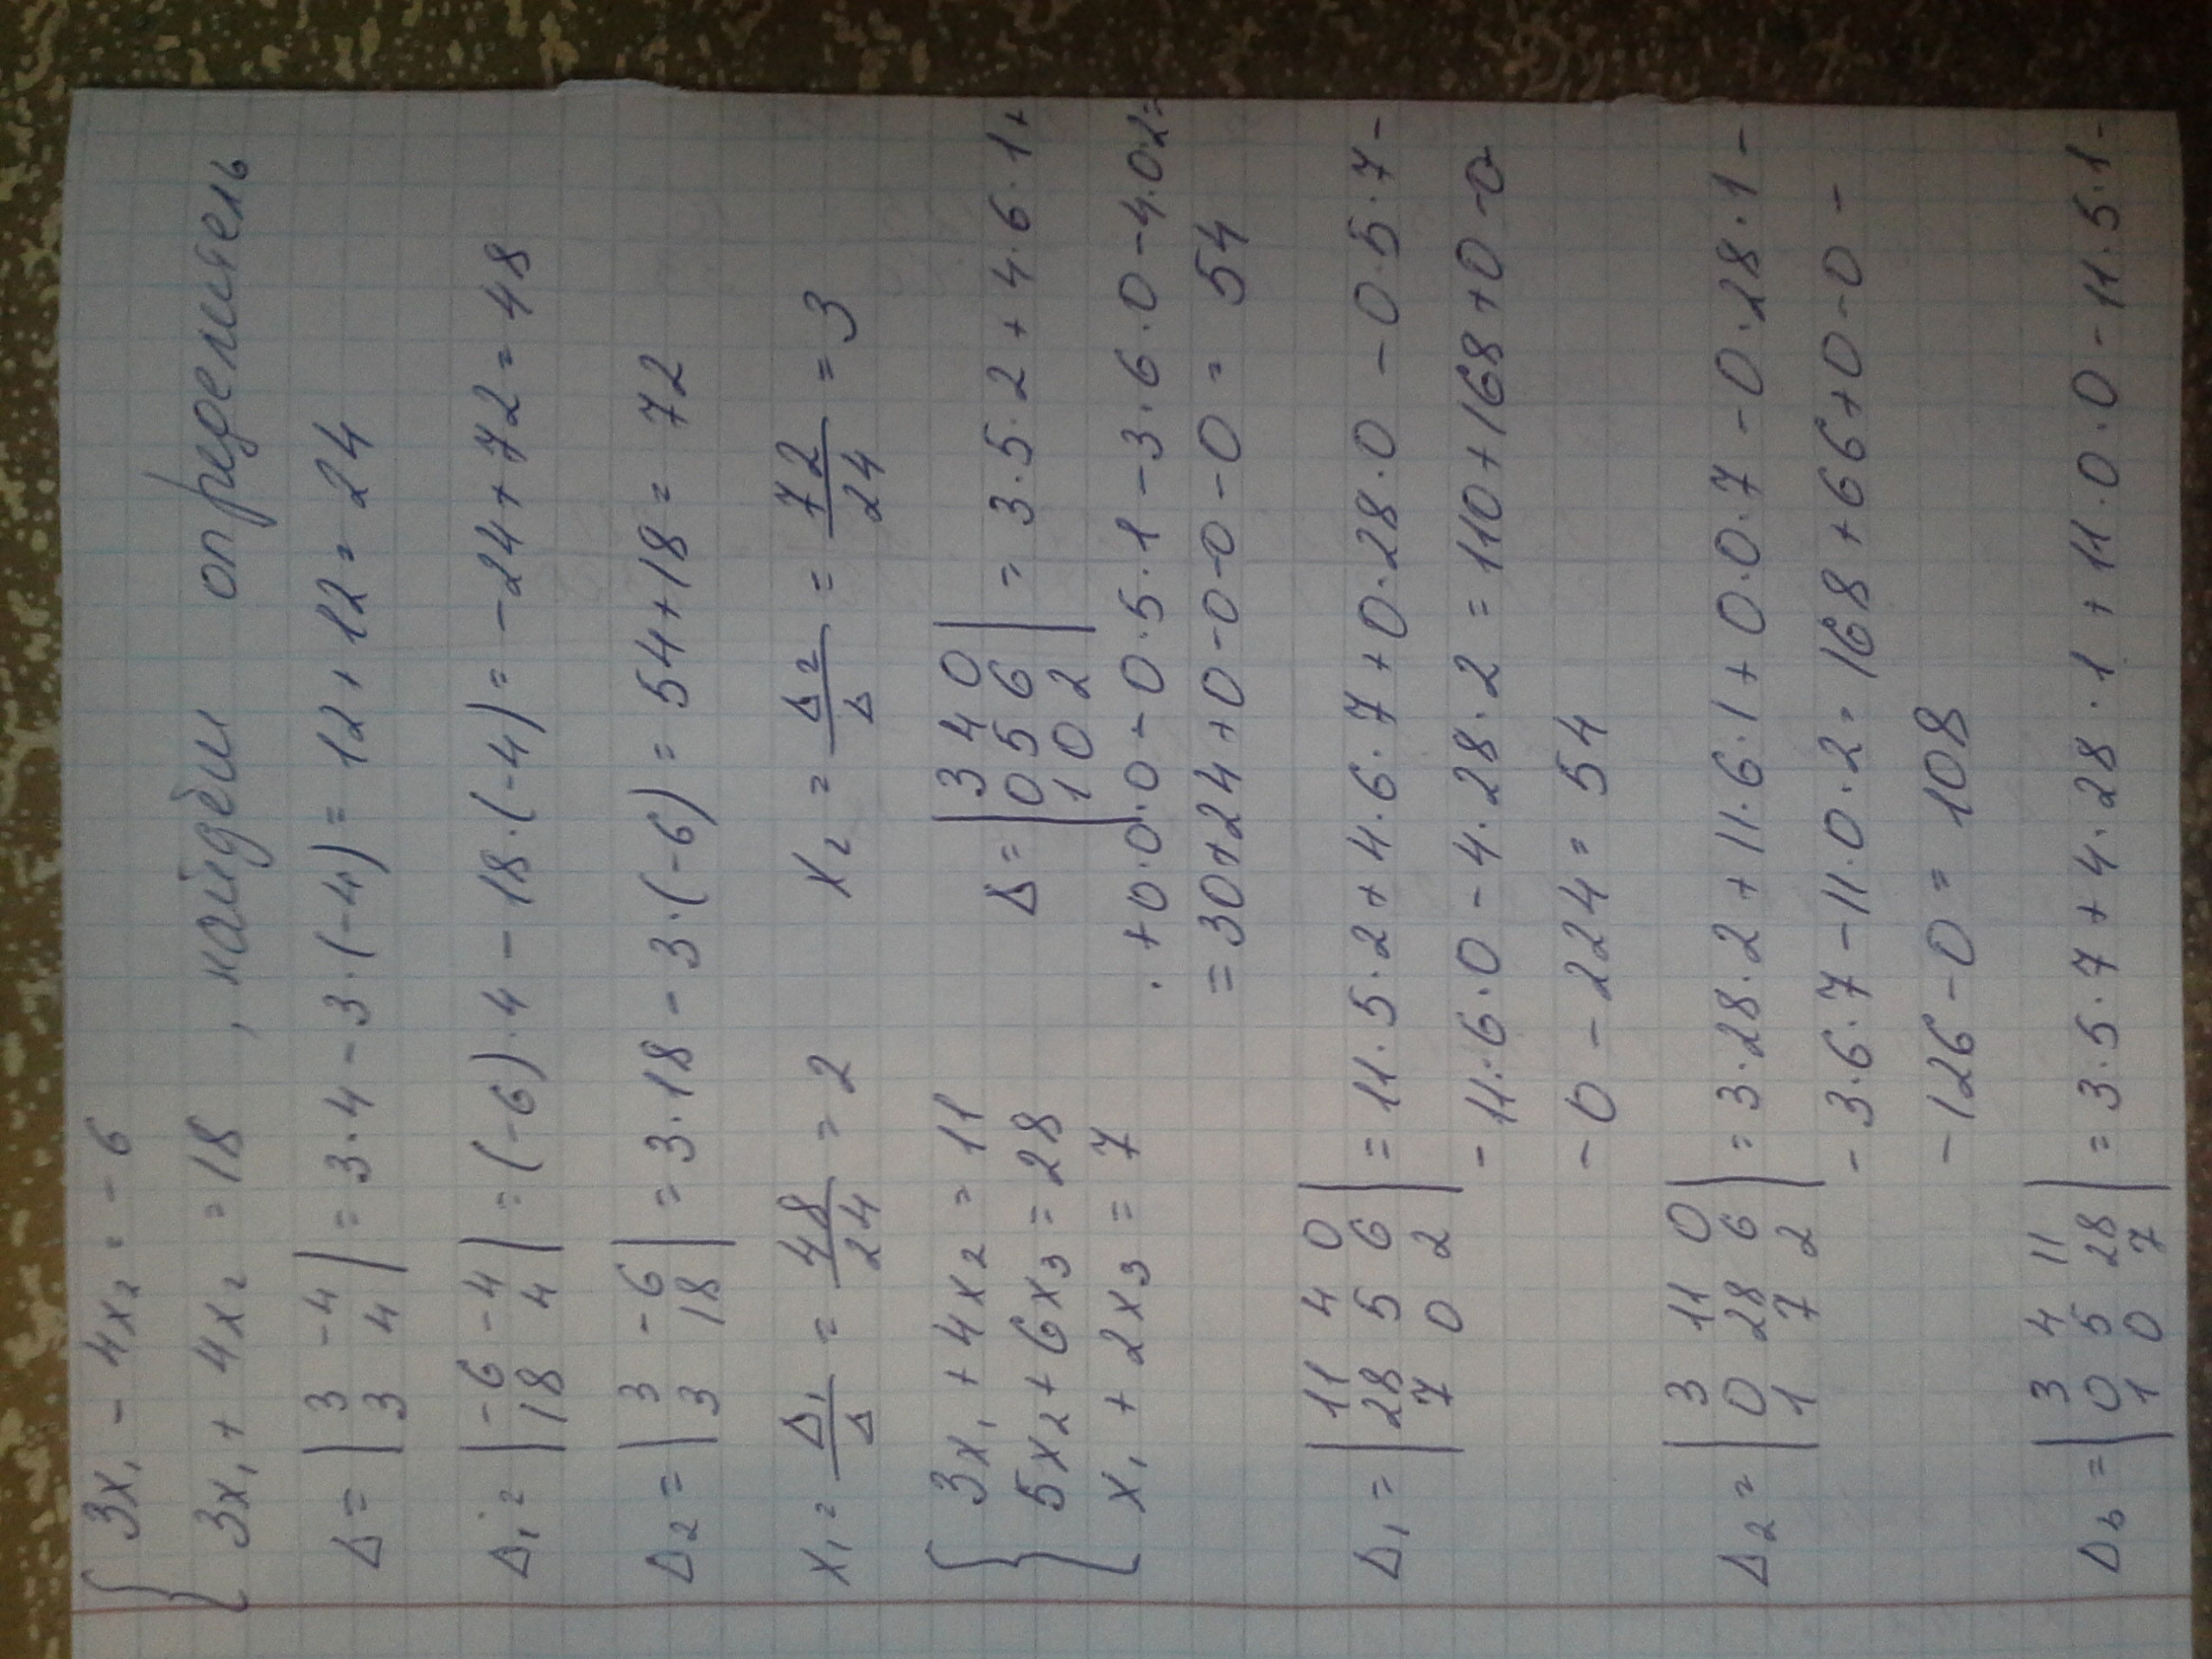 { 3x₁ - 4x₂ = -6
3x₁ + 4x₂ = 18 , найдём определитель
Δ = | 3 -4 |
| 3 4 | = 3·4 - 3·(-4) = 12 + 12 = 24
Δ₁ = | -6 -4 |
| 18 4 | = (-6)·4 - 18·(-4) = -24 + 72 = 48
Δ₂ = | 3 -6 |
| 3 18 | = 3·18 - 3·(-6) = 54 + 18 = 72
x₁ = Δ₁/Δ = 48/24 = 2 x₂ = Δ₂/Δ = 72/24 = 3
{ 3x₁ + 4x₂ = 11
5x₂ + 6x₃ = 28
x₁ + 2x₃ = 7
Δ = | 3 4 0 |
| 0 5 6 |
| 1 0 2 | = 3·5·2 + 4·6·1 +
+ 0·0·0 - 0·5·1 - 3·6·0 - 4·0·2 =
= 30 + 24 + 0 - 0 - 0 - 0 = 54
Δ₁ = | 11 4 0 |
| 28 5 6 |
| 7 0 2 | = 11·5·2 + 4·6·7 + 0·28·0 - 0·5·7 -
- 11·6·0 - 4·28·2 = 110 + 168 + 0 - 0
- 0 - 224 = 54
Δ₂ = | 3 11 0 |
| 0 28 6 |
| 1 7 2 | = 3·28·2 + 11·6·1 + 0·0·7 - 0·28·1 -
- 3·6·7 - 11·0·2 = 168 + 66 + 0 - 0 -
- 126 - 0 = 108
Δ₃ = | 3 4 11 |
| 0 5 28 |
| 1 0 7 | = 3·5·7 + 4·28·1 + 11·0·0 - 11·5·1 -